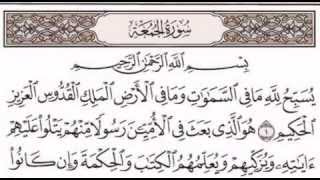 سُورَةُ الْجُمُعَةِ
بِسْمِ اللَّهِ الرَّحْمَٰنِ الرَّحِيمِ
يُسَبِّحُ لِلَّهِ مَا فِي السَّمَاوَاتِ وَمَا فِي الْأَرْضِ الْمَلِكِ الْقُدُّوسِ الْعَزِيزِ
الْحَكِيمِ ١ هُوَ الَّذِي بَعَثَ فِي الْأُمِّيِّينَ رَسُولًا مِّنْهُمْ يَتْلُوا عَلَيْهِمْ
آيَاتِهِ وَيُزَكِّيهِمْ وَيُعَلِّمُهُمُ الْكِتَابَ وَالْحِكْمَةَ وَإِن كَانُوا